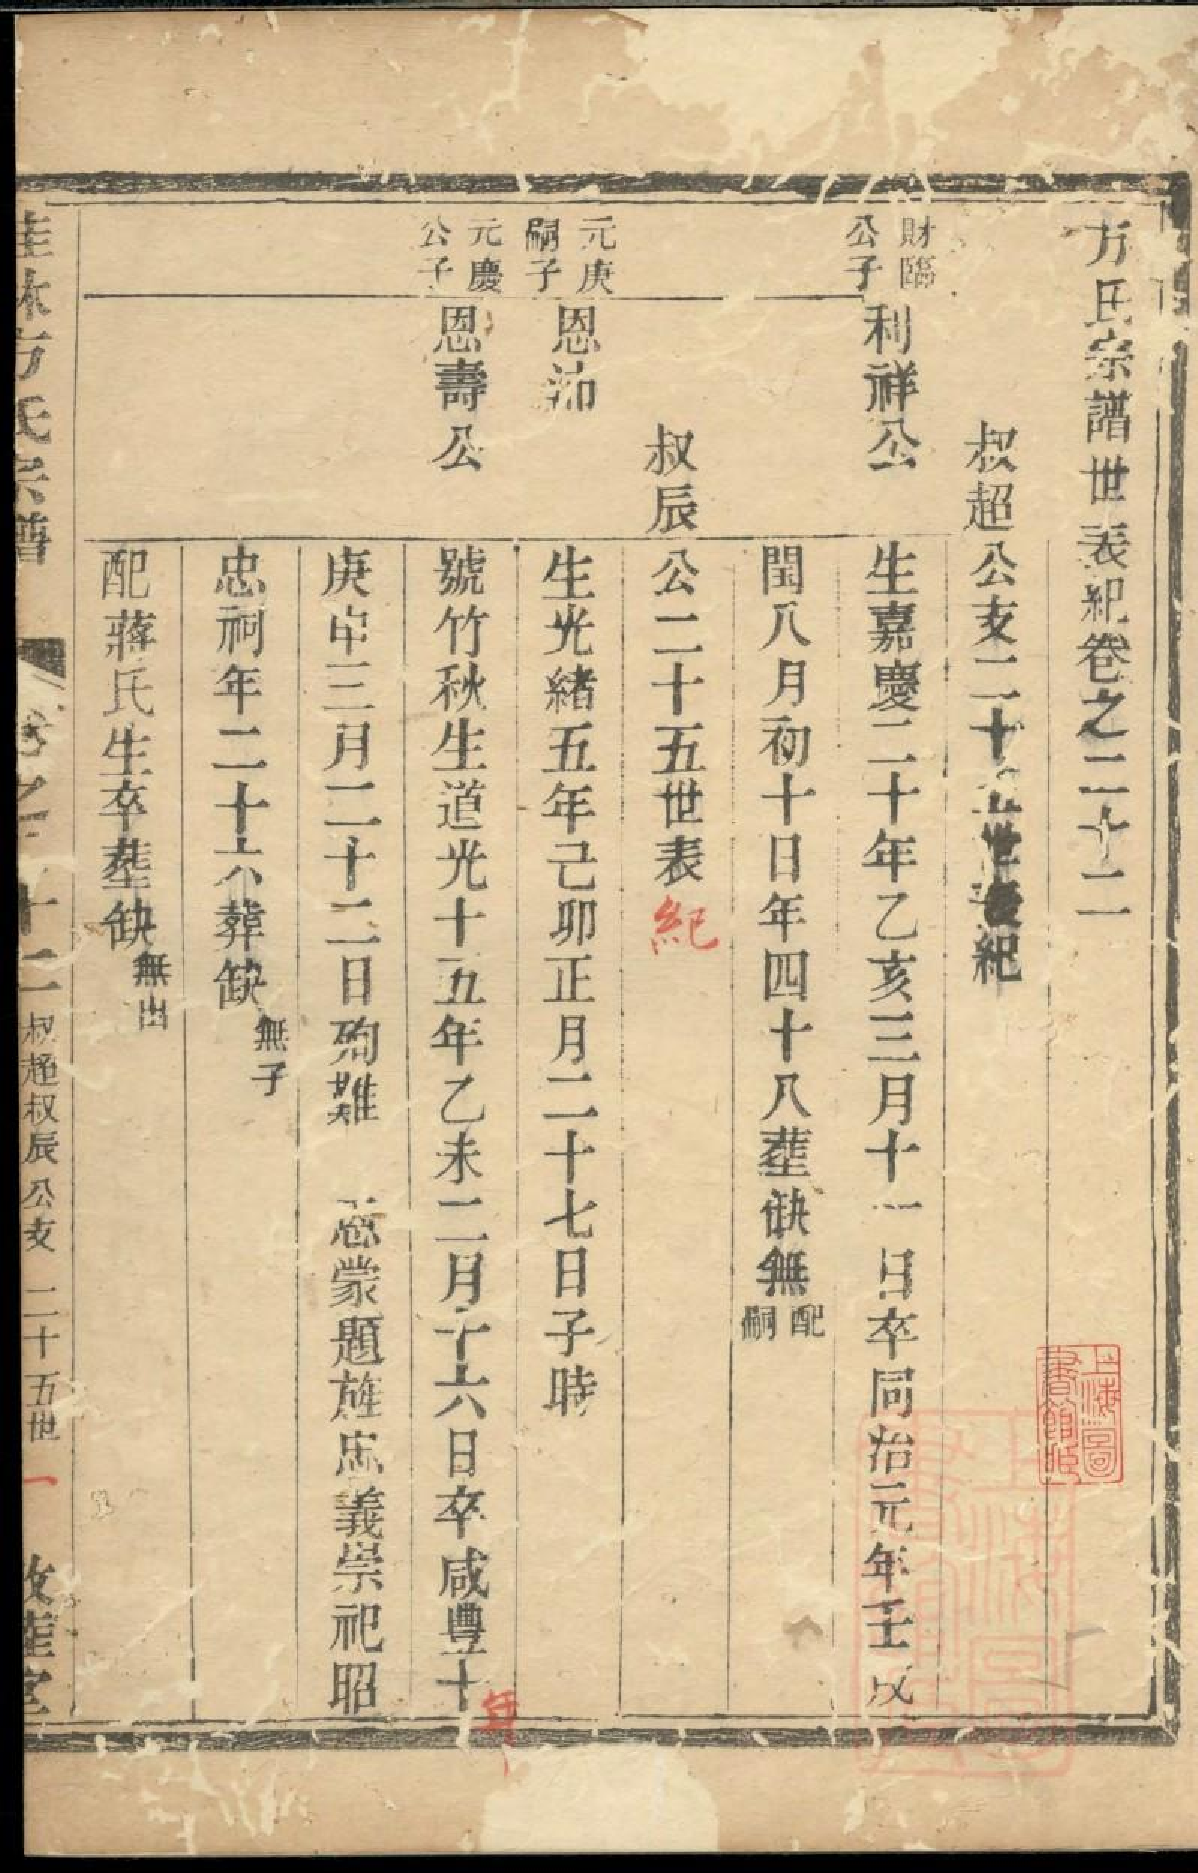 方氏宗譜世表紀卷之二十二
叔超公支二十五世表紀
財臨
公子
利祥公
生嘉慶二十年乙亥三月十一日卒同治元年壬戌
閏八月初十日年四十八塟缺無配
嗣
叔辰公二十五世表紀
元庚
嗣子
恩沛
生光緒五年己卯正月二十七日子時
元慶
公子
恩壽公
號竹秋生道光十五年乙未二月十六日卒咸豐十年
庚申三月二十二日殉難 恩蒙題旌忠義崇祀昭
忠祠年二十六葬缺無子
配蔣氏生卒塟缺無出
桂林方氏宗譜 卷之二十二 叔超叔辰公支 二十五世 一 敦睦堂
上海圖書館